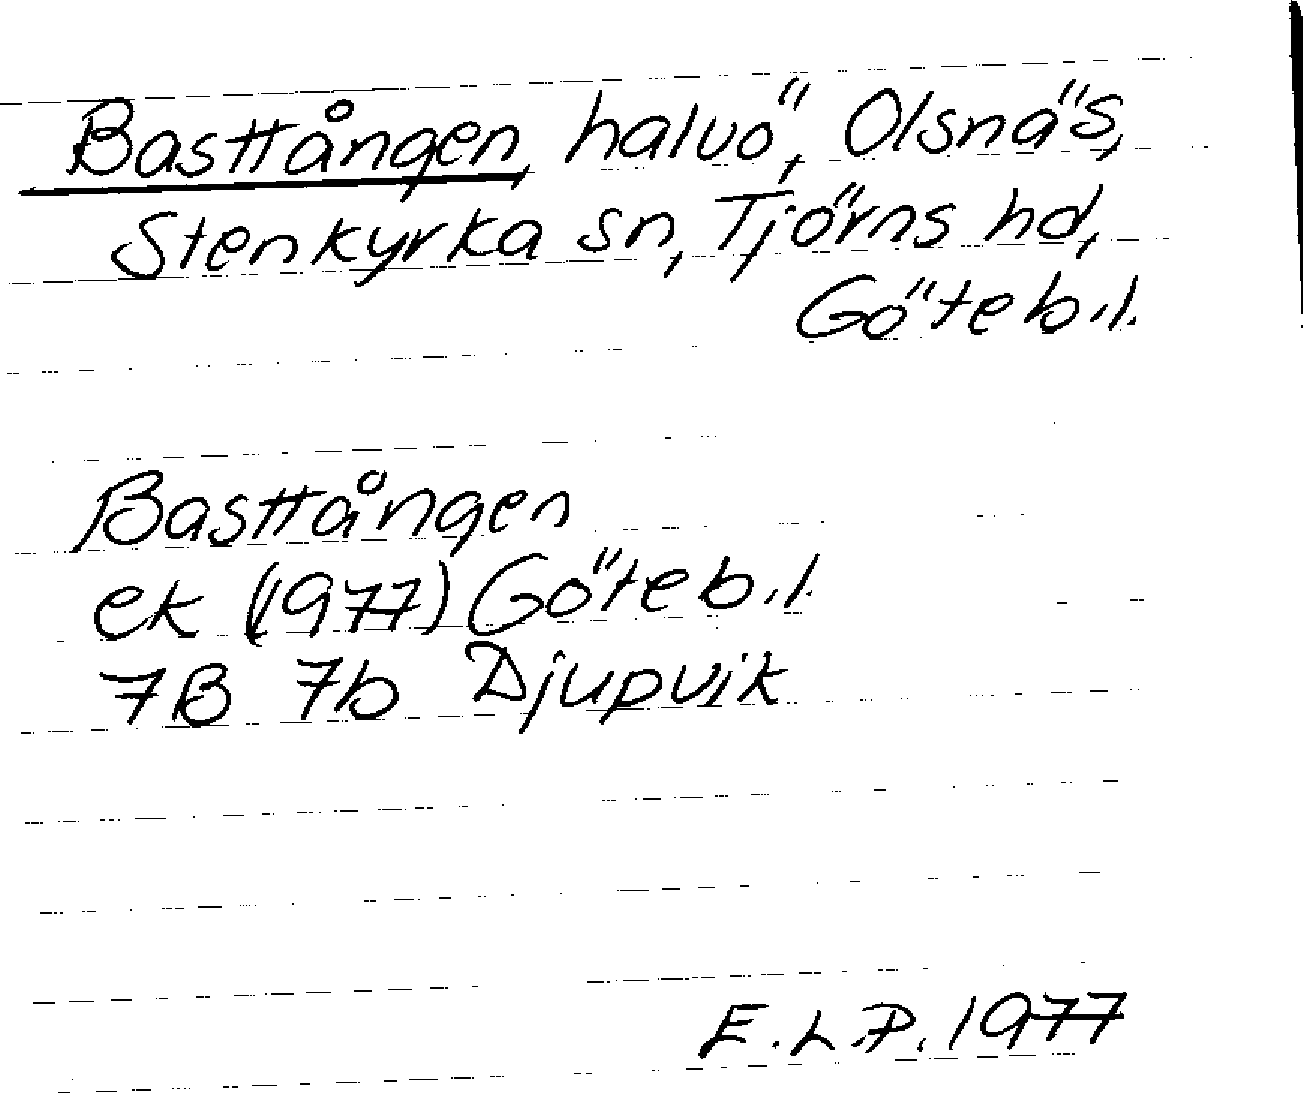 Basttången, halvö, Olsnäs,
Stenkyrka sn, Tjörns hd,
Göteb.l.
Basttången
ek (1977) Göteb.l.
7B 7b Djupvik
E.L.P. 1977